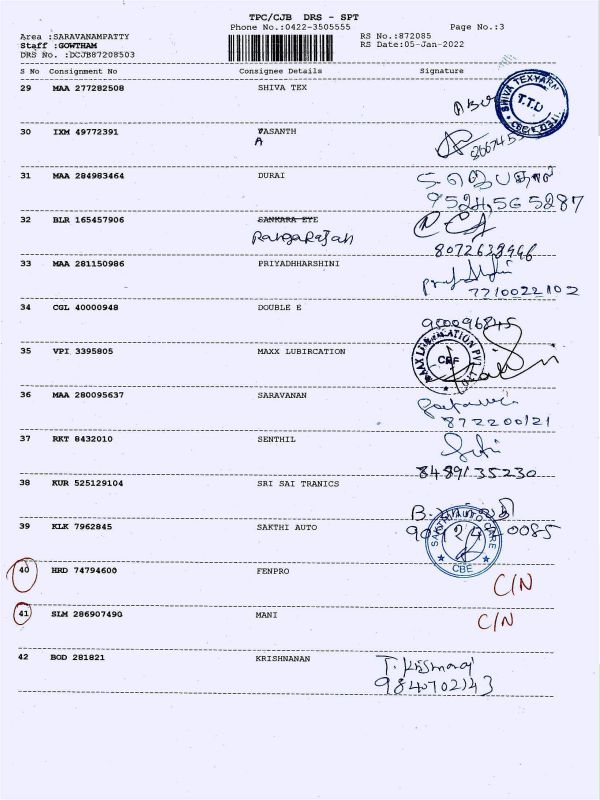 TPC/CJB DRS - SPT
Phone No.:0422-3505555 Page No.:3
Area :SARAVANAMPATTY RS No.:872085
Staff :GOWTHAM RS Date:05-Jan-2022
DRS No. :DCJB87208503
S No Consignment No Consignee Details Signature
29 MAA 277282508 SHIVA TEX
SHIVA TEXYARN
T.T.D
CBE
30 IXM 49772391 VASANTH
A
31 MAA 284983464 DURAI
9524565287
32 BLR 165457906 SANKARA EYE
Rangarajan
8072638946
33 MAA 281150986 PRIYADHHARSHINI
7710022102
34 CGL 40000948 DOUBLE E
900096845
35 VPI 3395805 MAXX LUBIRCATION
CBE
36 MAA 280095637 SARAVANAN
872200121
37 RKT 8432010 SENTHIL
8489135230
38 KUR 525129104 SRI SAI TRANICS
39 KLK 7962845 SAKTHI AUTO
SAKTHI AUTO CARE
CBE
40 HRD 74794600 FENPRO
C/N
41 SLM 286907490 MANI
C/N
42 BOD 281821 KRISHNANAN
9840702143